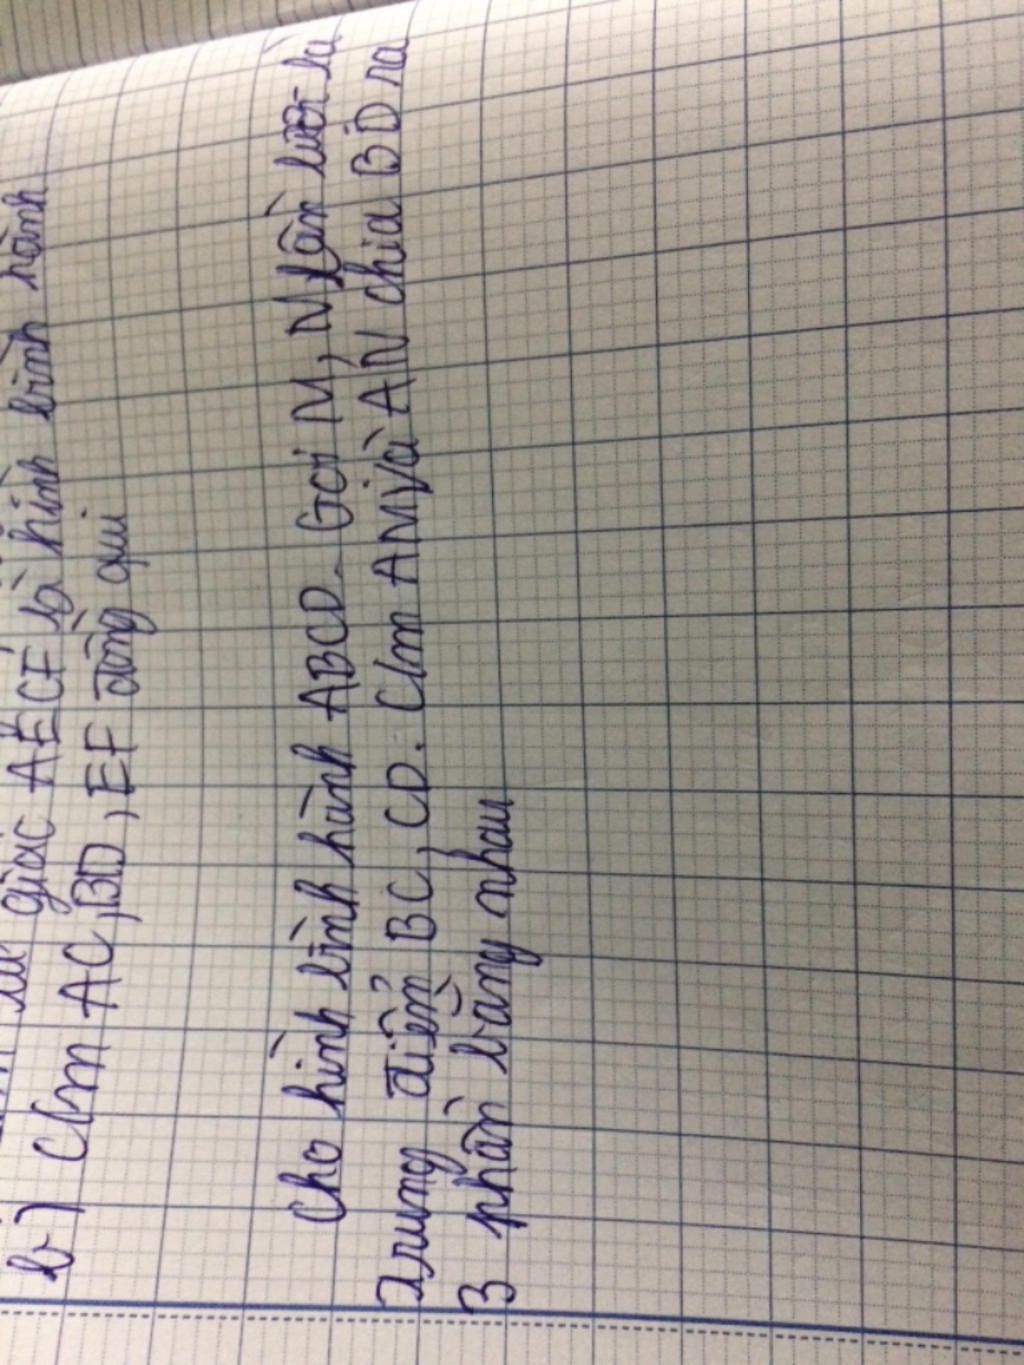 giác AECF là hình bình hành
b) C/m AC, BD, EF đồng qui
Cho hình bình hành ABCD. Gọi M, N lần lượt là
Trung điểm BC, CD. C/m AM và AN chia BD ra
3 phần bằng nhau